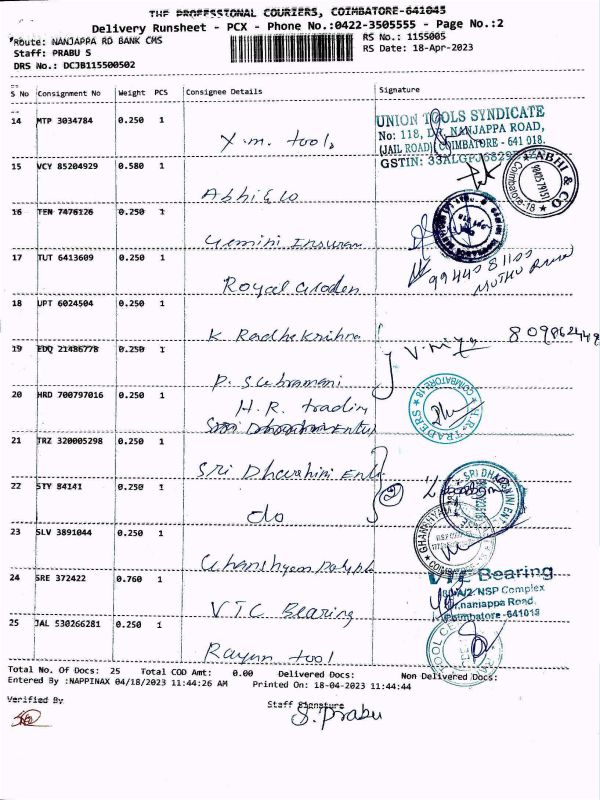 THE PROFESSIONAL COURIERS, COIMBATORE-641045
Delivery Runsheet - PCX - Phone No.:0422-3505555 - Page No.:2
Route: NANJAPPA RD BANK CMS
RS No.: 1155005
Staff: PRABU S
RS Date: 18-Apr-2023
DRS No.: DCJB115500502
S No Consignment No Weight PCS Consignee Details Signature
14 MTP 3034784 0.250 1
Y.m. tools
UNION TOOLS SYNDICATE
No: 118, DR. NANJAPPA ROAD,
(JAIL ROAD) COIMBATORE - 641 018.
GSTIN:
15 VCY 85204929 0.580 1
Abhi & co
ABHI & CO
Coimbatore-18
16 TEN 7476126 0.250 1
Gemini Insuran
17 TUT 6413609 0.250 1
Royal Garden
99440 81103
18 UPT 6024504 0.250 1
K Radhakrishna
19 EDQ 21486778 0.250 1
P. Subramani
20 HRD 700797016 0.250 1
H.R. tradin
H.R. TRADERS
COIMBATORE-18
21 TRZ 320005298 0.250 1
Sri Dharshini Ente
22 STY 84141 0.250 1
do
2
SRI DHARSHINI ENT
23 SLV 3891044 0.250 1
Ghanshyam
24 SRE 372422 0.760 1
VTC Bearing
VTC Bearing
NSP Complex
Dr.nanjappa Road,
Coimbatore -641018
25 JAL 530266281 0.250 1
tool
Total No. Of Docs: 25 Total COD Amt: 0.00 Delivered Docs: Non Delivered Docs:
Entered By :NAPPINAX 04/18/2023 11:44:26 AM Printed On: 18-04-2023 11:44:44
Verified By
Staff Signature
S. Prabu